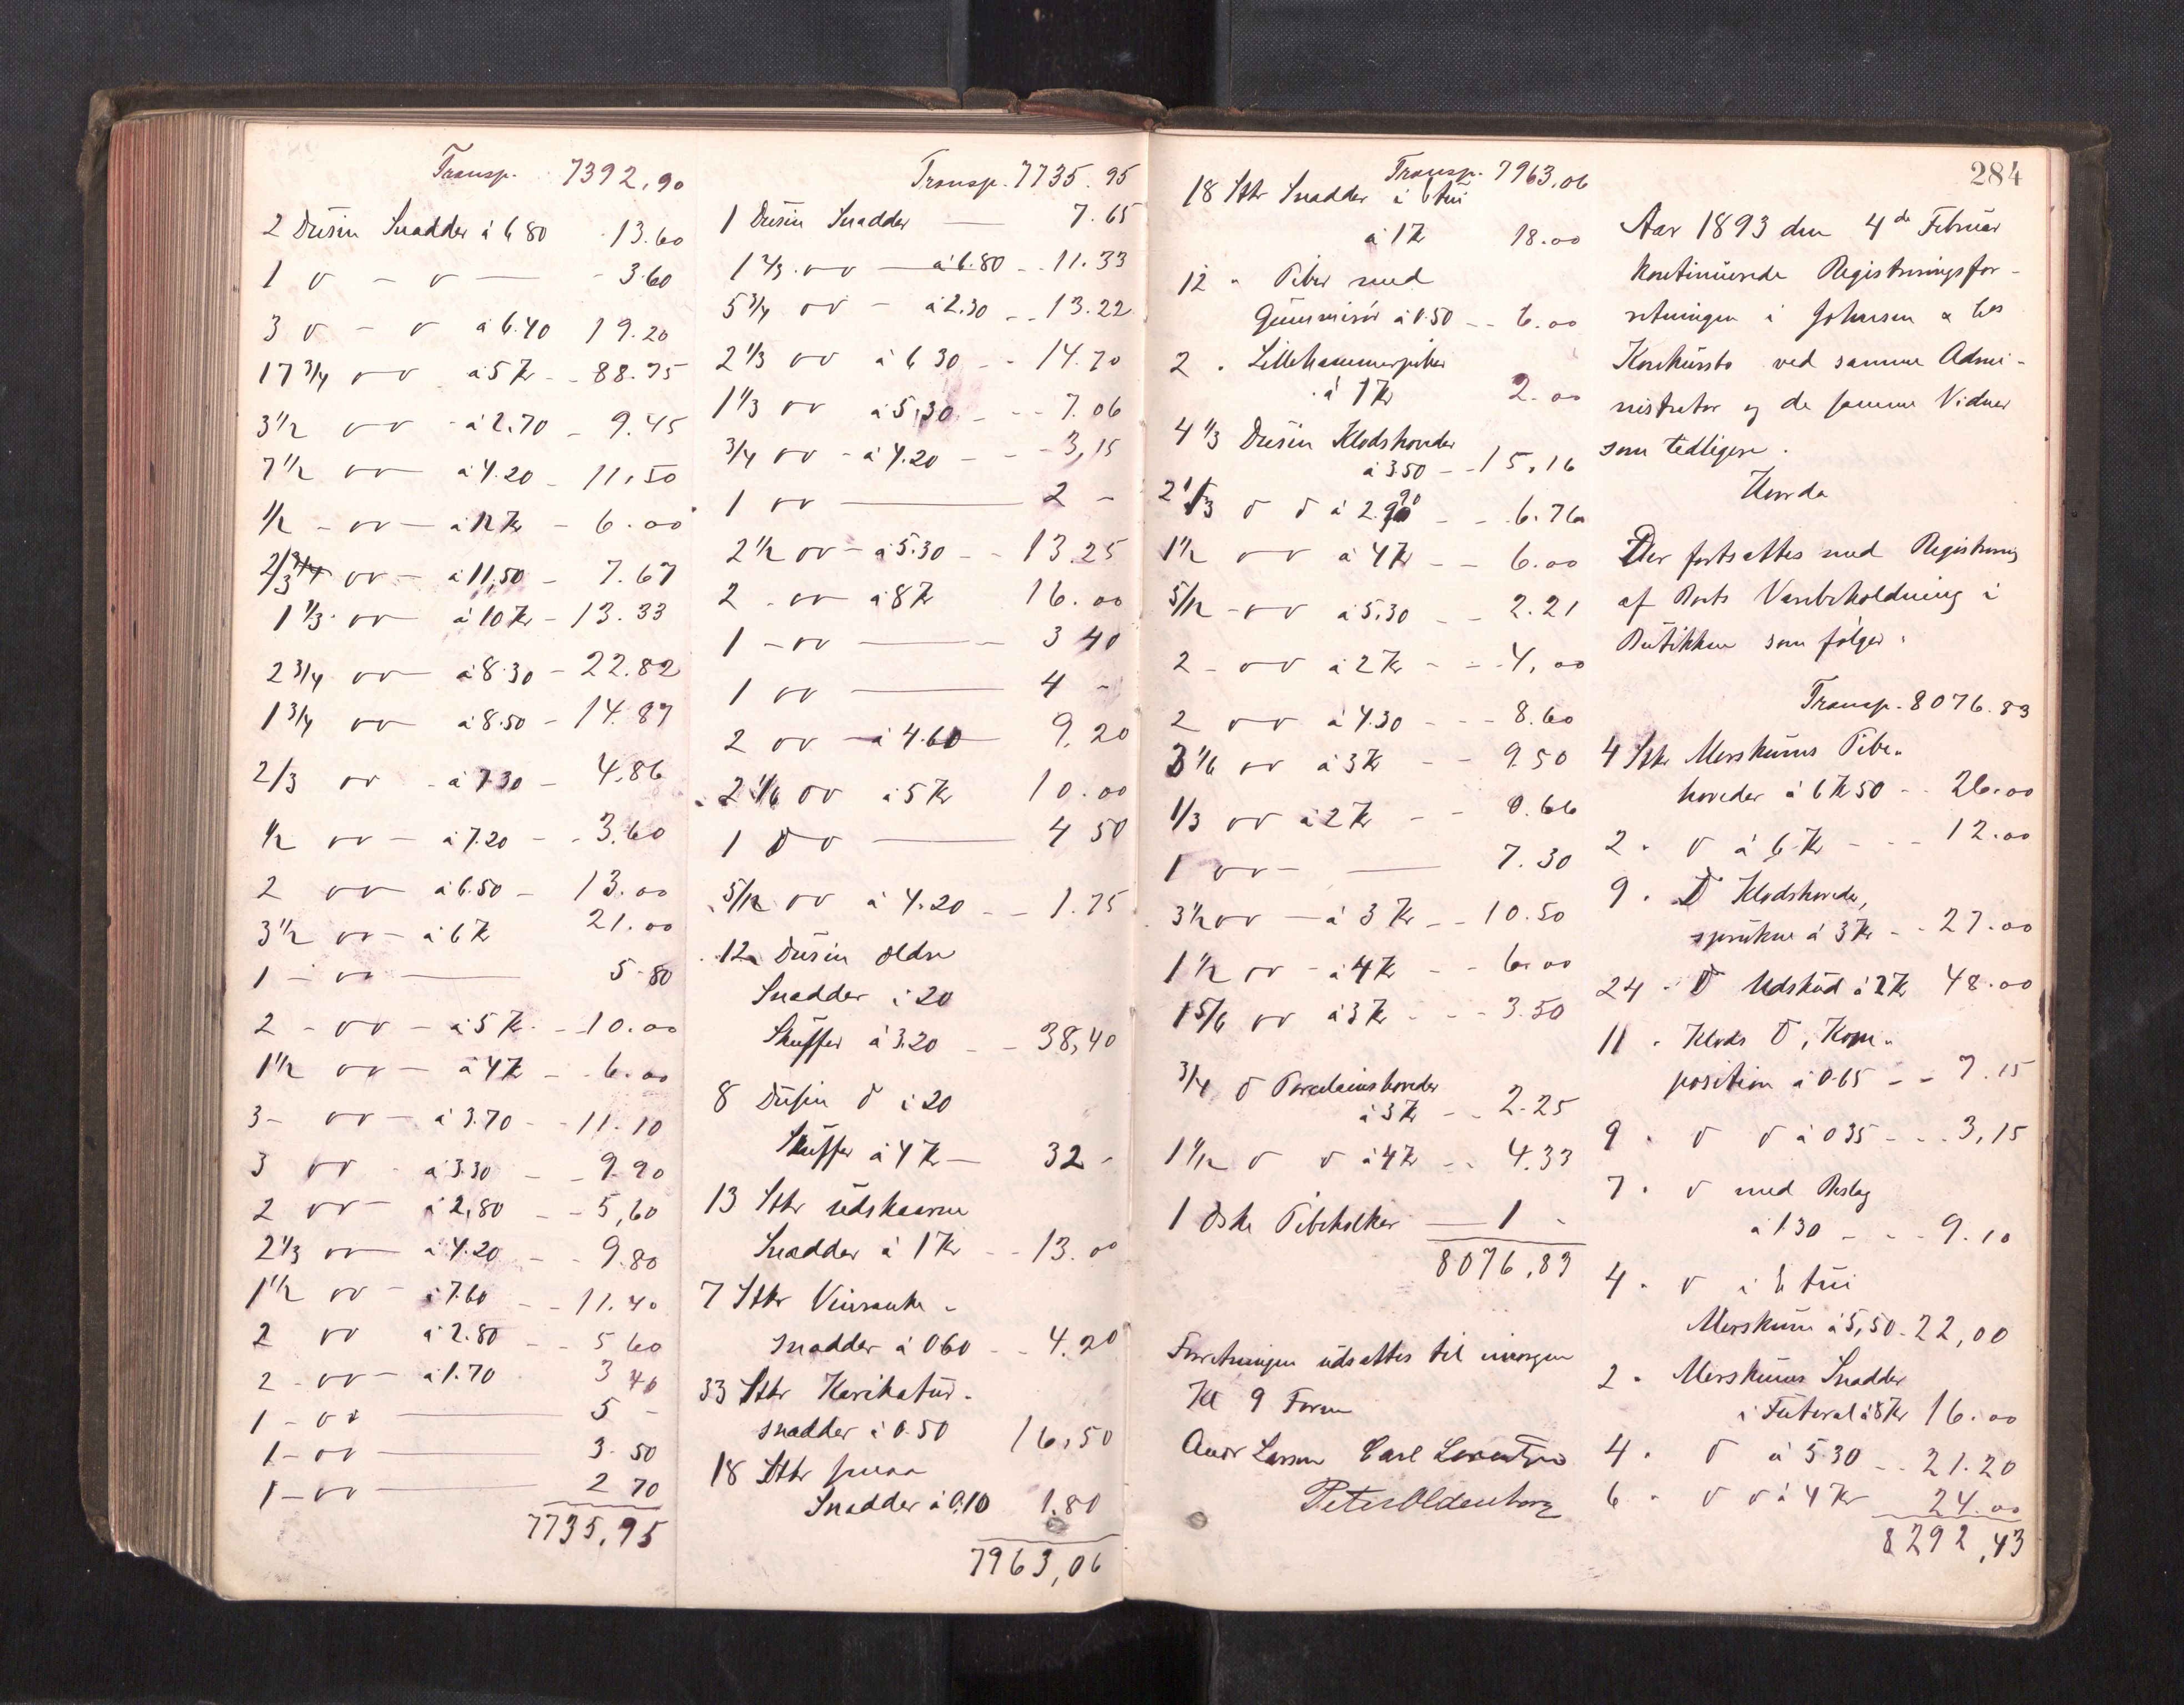 Transp. 7392,90
2 Dusin Snadder à 6 80 13.60
1 v - v - 3.60
3 v - v à 6.40 19.20
17 3/4 v v à 5 Kr - 88.75
3 1/2 v v à 2.70 - 9.45
7 1/2 v v à 4.20 - 11,50
1/2 - v v - à 12 Kr - 6.00
2/3 v v - à 11,50 - 7.67
1 1/3 v v à 10 Kr - 13.33
2 3/4 v v à 8.30 - 22.82
1 3/4 v v à 8.50 - 14.87
2/3 v v - à 7.30 - 4.86
1/2 v v - à 7.20 - 3.60
2 v v à 6.50 - 13.00
3 1/2 v v - à 6 Kr 21.00
1 - v v - 5.80
2 - v v - à 5 Kr - 10.00
1 1/2 v v - à 4 Kr - 6.00
3 - v v - à 3.70 - 11.10
3 v v - à 3.30 - 9.90
2 v v - à 2,80 - 5,60
2 1/3 v v à 4.20 - 9.80
1 1/2 v v - à 7.60 - 11.40
2 v v à 2.80 - 5 60
2 - v v - à 1.70 3 40
1 - v v - 5 -
1 - v v - 3.50
1 - v v - 2 70
7735,95
Transp. 7735.95
1 Dusin Snadder - 7.65
1 2/3 v v - à 6.80 - 11.33
5 3/4 v v - à 2.30 - 13.22
2 1/3 v v à 6 30 - 14.70
1 1/3 v v à 5,30 - 7.06
3/4 v v - à 4.20 - 3,15
1 v v - 2 -
2 1/2 v v - à 5.30 - 13.25
2 - v v à 8 Kr 16.00
1 - v v - 3 40
1 v v - 4 -
2 v v - à 4.60 9.20
2 1/6 v v à 5 Kr 10.00
1 v v - 4 50
5/12 v v à 4.20 - 1.75
12 Dusin oldre
Snadder i 20
Skuffer à 3.20 - 38,40
8 Dusin v i 20
Skuffer à 4 Kr - 32 -
13 Stkr udskaarne
Snadder à 1 Kr - 13.00
7 Stkr Vinranke-
snadder à 0 60 - 4.20
33 Stkr Karikatur-
snadder à 0.50 16,50
18 Stkr smaa
Snadder à 0,10 1.80
7963,06
Transp. 7963,06
18 Stkr Snadder i Etui
à 1 Kr 18.00
12 " Piber med
Gummirör à 0.50 - 6.00
2 " Lillehammerpiber
à 1 Kr 2.00
4 1/3 Dusin Klodshoveder
à 3.50 - 15,16
2 1/3 v v à 2.90 - 6.76
1 1/2 v v à 4 Kr - 6.00
5/12 - v v à 5.30 - 2.21
2 - v v à 2 Kr - 4,00
2 v v à 4.30 - 8.60
3 1/6 v v à 3 Kr - 9.50
1/3 v v à 2 Kr - 0.66
1 v v - 7.30
3 1/2 v v - à 3 Kr - 10.50
1 1/2 v v - à 4 Kr - 6.00
1 5/6 v v à 3 Kr - 3.50
3/4 v Porcelainshoveder
à 3 Kr - 2.25
1 1/12 v v à 4 Kr - 4.33
1 Æske Pibeholker - 1 -
8076,83
Forretningen udsattes til imorgen
Kl 9 Form
Andr Larsen Carl Lorentzen
Peter Oldenborg
284
Aar 1893 den 4de Februar
kontinuerede Registreringsfor-
retningen i Johnsen & Co's
Konkursbo ved samme Admi-
nistrator og de samme Vidner
som tidligere.
Hvorda
Der fortsattes med Registrering
af Boets Varebeholdning i
Butikken som følger:
Transp. 8076.83
4 Stkr Merskums Pibe-
hoveder à 6 Kr 50 - 26.00
2 " v à 6 Kr - 12.00
9 " v Klodshoveder,
sprukne à 3 Kr - 27.00
24 " v Udskud à 2 Kr 48.00
11 " Klods v, Kom-
position à 0.65 - 7.15
9 " v v à 0 35 - 3,15
7 " v med Beslag
à 1.30 - 9.10
4 " v i Etui
Merskum à 5,50 - 22,00
2 " Merskums Snadder
i Futeral à 8 Kr 16.00
4 " v à 5.30 - 21.20
6 " v v à 4 Kr 24.00
8292,43